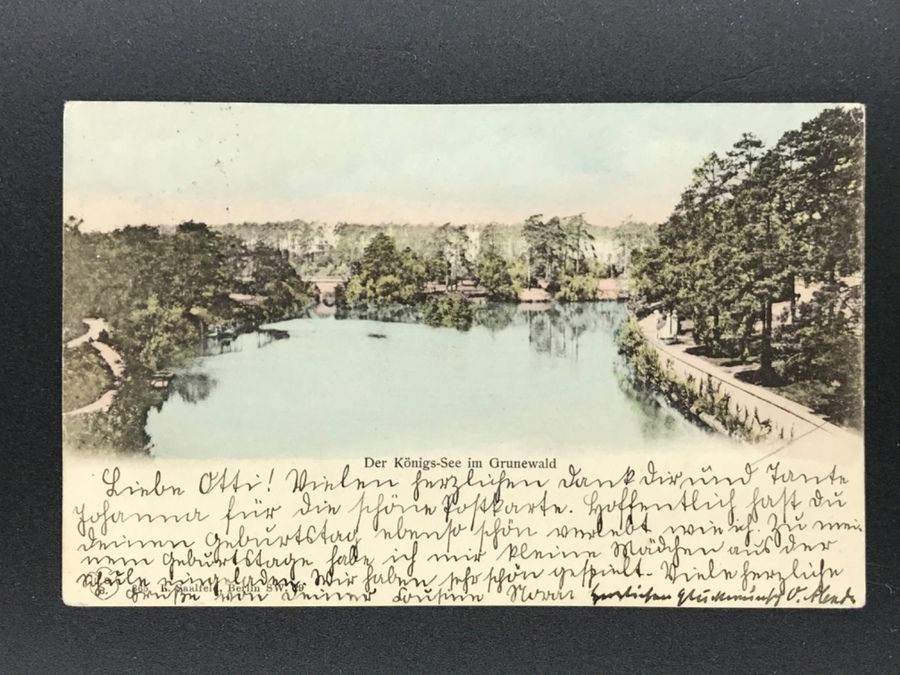 Der Königs-See im Grunewald
Liebe Otti! Vielen herzlichen Dank dir und Tante
Johanna für die schöne Postkarte. Hoffentlich hast du
deinen Geburtstag ebenso schön verlebt wie ich. Zu mei-
nem Geburtstage habe ich mir kleine Mädchen aus der
Schule eingeladen. Wir haben sehr schön gespielt. Viele herzliche
K. Saalfeld, Berlin SW.
Grüße von Deiner Cousine
Herzlichen Glückwunsch O.